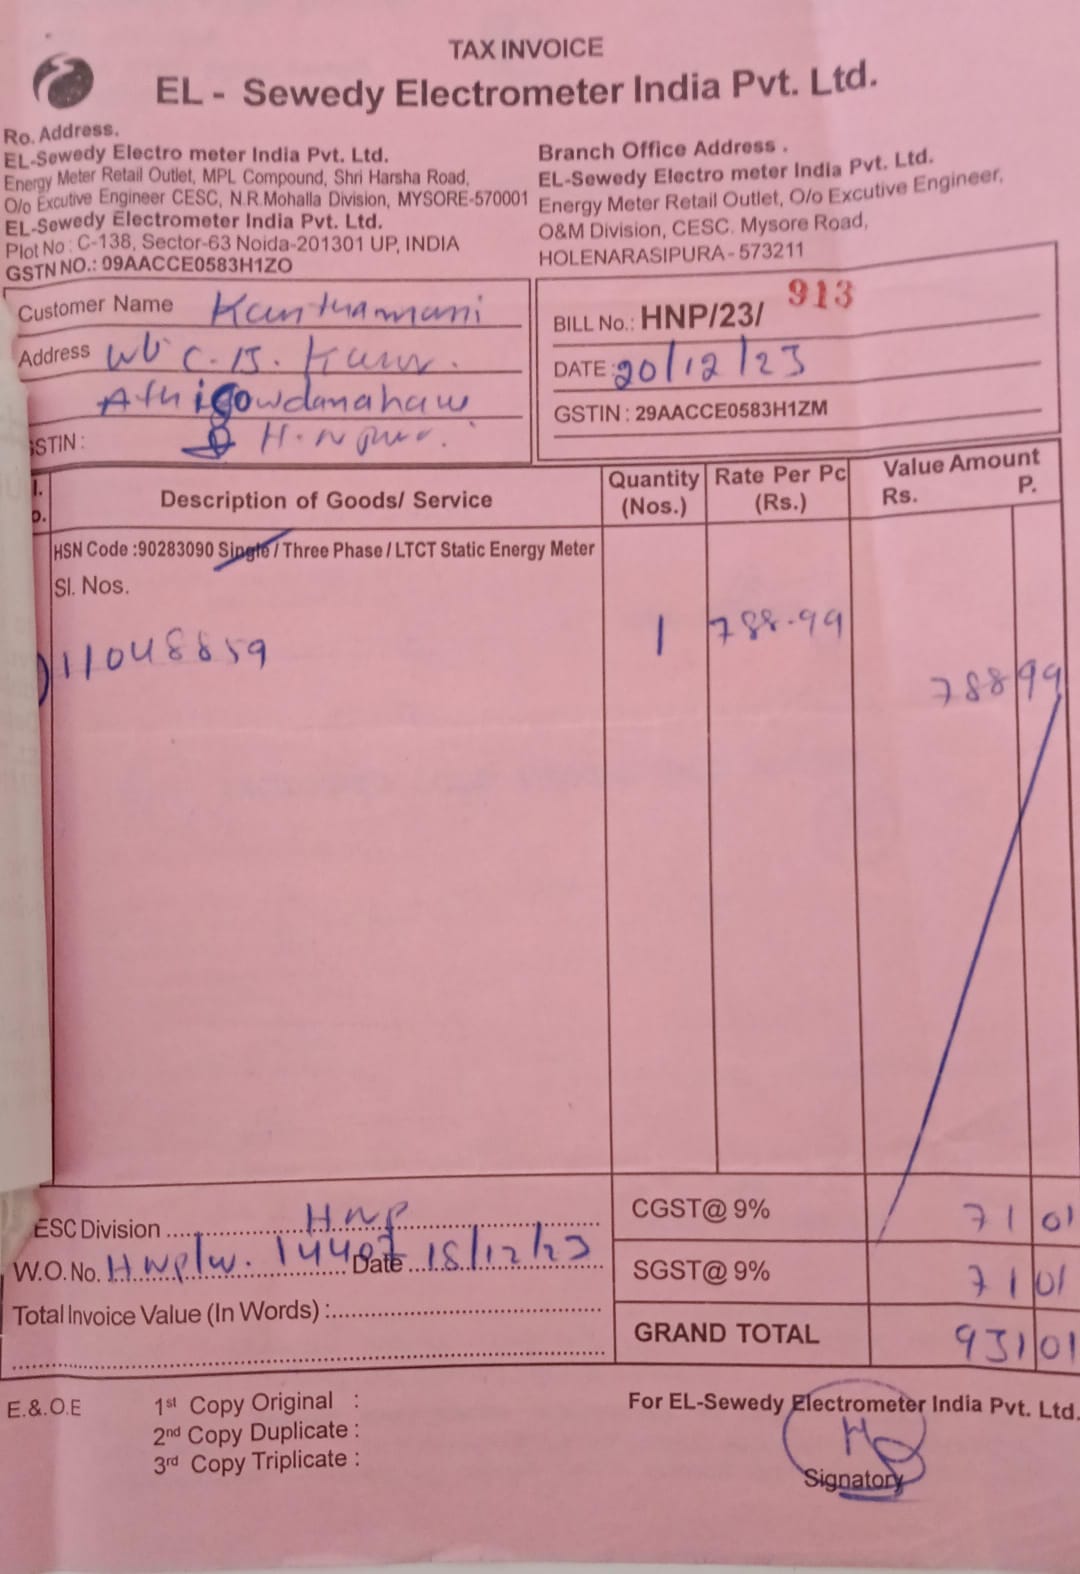 TAX INVOICE
EL - Sewedy Electrometer India Pvt. Ltd.
Ro. Address.
EL-Sewedy Electro meter India Pvt. Ltd.
Energy Meter Retail Outlet, MPL Compound, Shri Harsha Road,
O/o Excutive Engineer CESC, N.R.Mohalla Division, MYSORE-570001
EL-Sewedy Electrometer India Pvt. Ltd.
Plot No : C-138, Sector-63 Noida-201301 UP, INDIA
GSTN NO.: 09AACCE0583H1ZO
Branch Office Address .
EL-Sewedy Electro meter India Pvt. Ltd.
Energy Meter Retail Outlet, O/o Excutive Engineer,
O&M Division, CESC. Mysore Road,
HOLENARASIPURA - 573211
Customer Name Kanthamani
Address C.B.
Athigowdanahaw
GSTIN : H.N pura.
BILL No.: HNP/23/ 913
DATE : 20/12/23
GSTIN : 29AACCE0583H1ZM
Description of Goods/ Service
Quantity (Nos.)
Rate Per Pc (Rs.)
Value Amount
Rs. P.
HSN Code :90283090 Single / Three Phase / LTCT Static Energy Meter
Sl. Nos.
11048859 1 788.99 788 99
ESC Division HNP
W.O. No. HNP/W. 14407 Date 18/12/23
Total Invoice Value (In Words) :
CGST@ 9% 71 01
SGST@ 9% 71 01
GRAND TOTAL 931 01
E.&.O.E
1st Copy Original :
2nd Copy Duplicate :
3rd Copy Triplicate :
For EL-Sewedy Electrometer India Pvt. Ltd.
Signatory